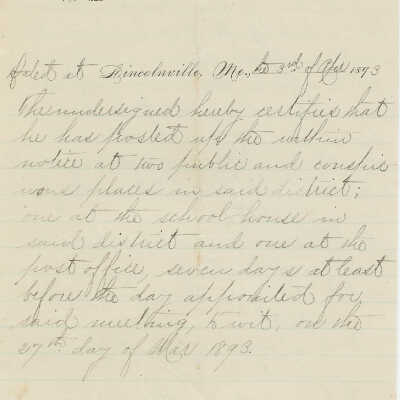 Dated at Lincolnville, Me., the 3rd of Apr 1893
The undersigned hereby certifies that
he has prosted up the within
notice at two public and conspic
uous places in said district;
one at the school house in
said district and one at the
post office, seven days at least
before the day appointed for
said meeting, to wit, on the
27th day of Mar 1893.